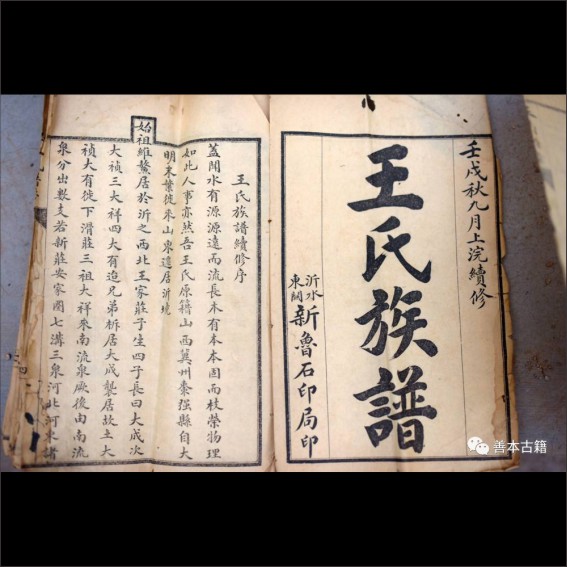 壬戌秋九月上浣續修
王氏族譜
沂水
東關
新魯石印局印
王氏族譜續修序
蓋聞水有源源遠而流長木有本本固而枝榮物理
如此人事亦然吾王氏原籍山西冀州棗强縣自大
明末葉徙來山東遠居沂境
始祖維鰲居於沂之西北王家莊子生四子長曰大成次
大禎三大祥四大有迨兄弟柝居大成襲居故土大
禎大有徙下滑莊三祖大祥來南流泉厥後由南流
泉分出數支若新莊安家圈七溝三泉河北河東諸
善本古籍